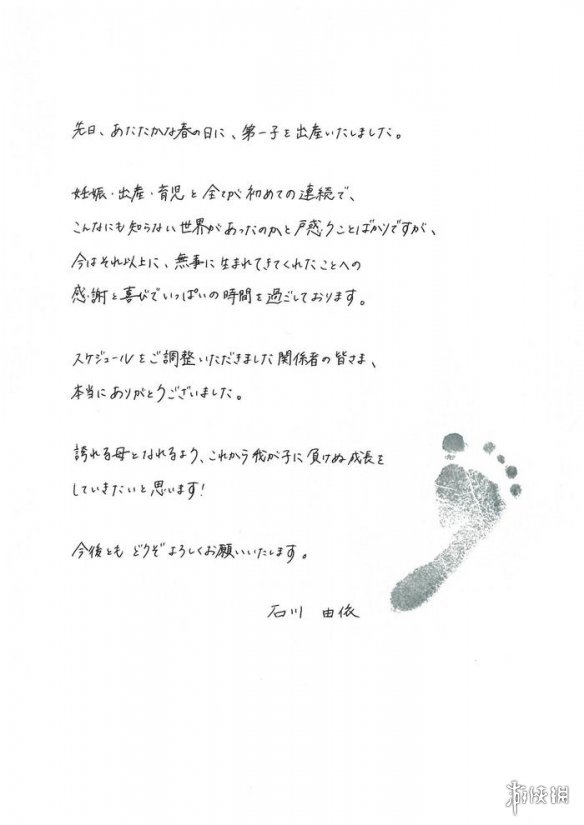 先日、あたたかな春の日に、第一子を出産いたしました。
妊娠・出産・育児と全てが初めての連続で、
こんなにも知らない世界があったのかと戸惑うことばかりですが、
今はそれ以上に、無事に生まれてきてくれたことへの
感謝と喜びでいっぱいの時間を過ごしております。
スケジュールをご調整いただきました関係者の皆さま、
本当にありがとうございました。
誇れる母となれるよう、これから我が子に負けぬ成長を
していきたいと思います!
今後とも どうぞよろしくお願いいたします。
石川 由依
游侠网